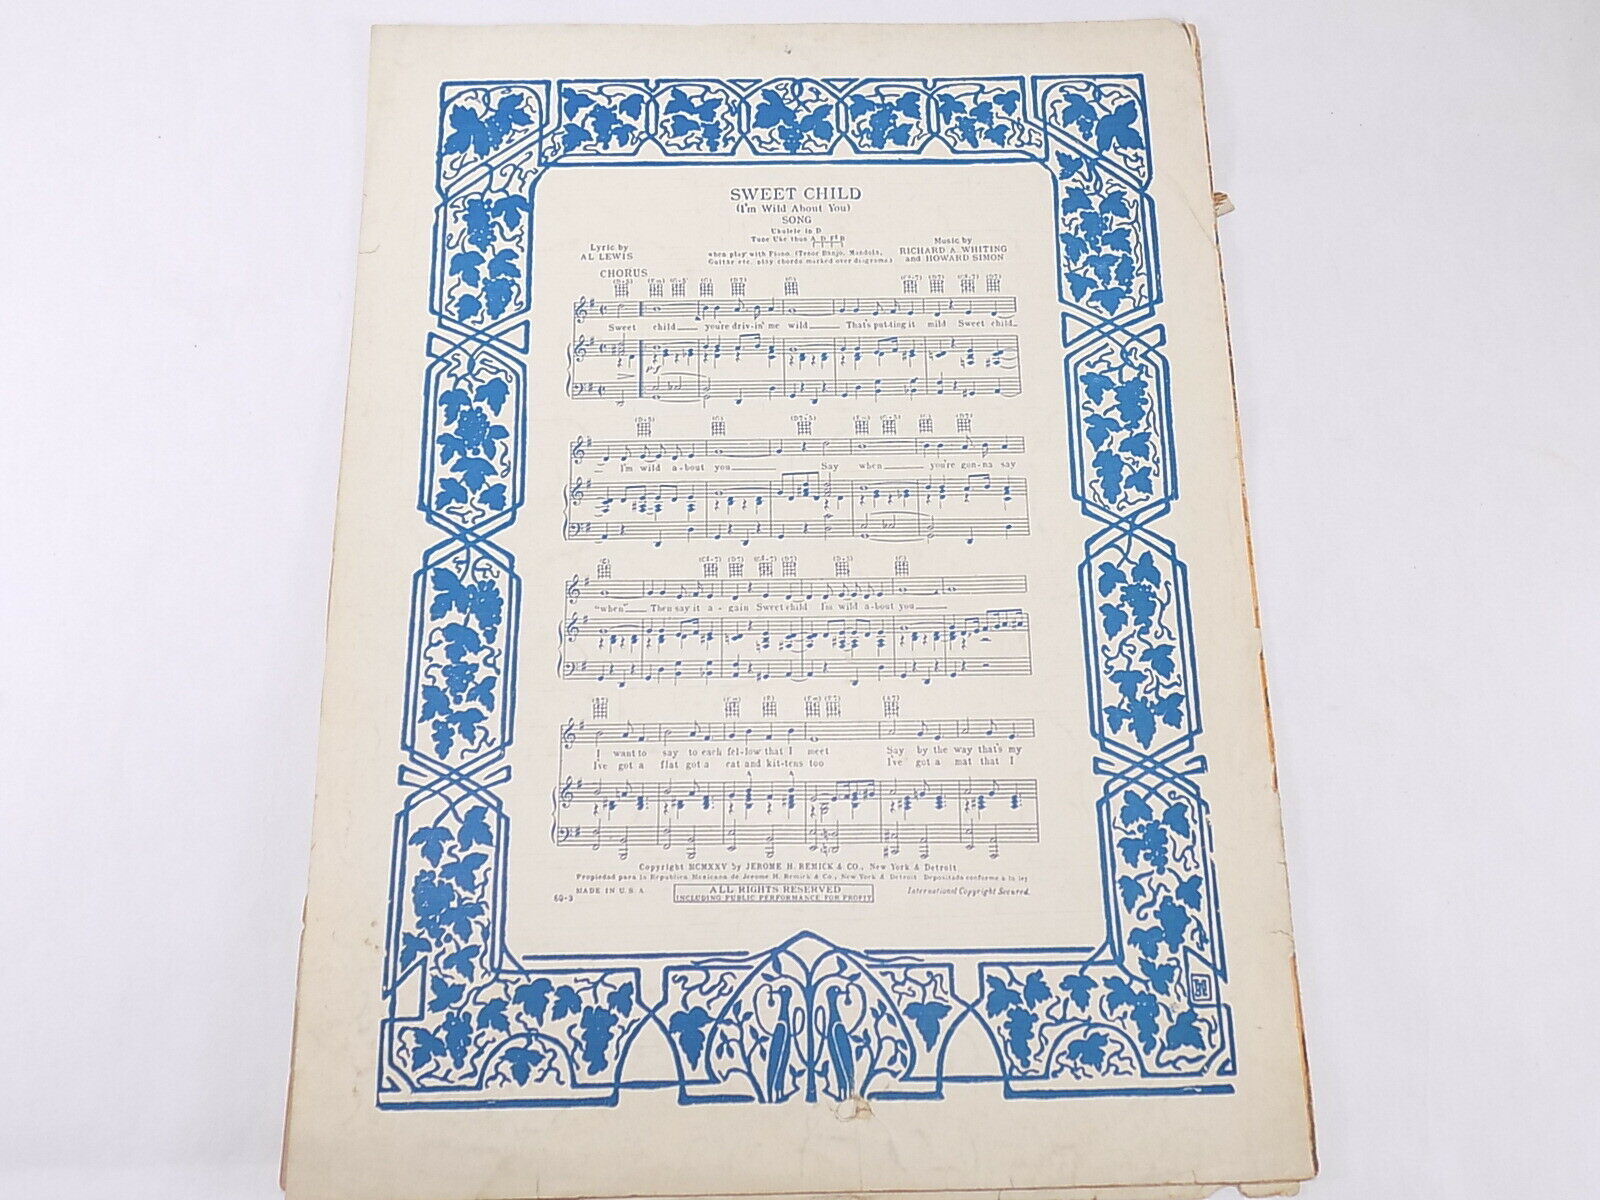 SWEET CHILD
(I'm Wild About You)
SONG
Ukulele in D
Tune Uke thus A D F# B
Lyric by
AL LEWIS
when play with Piano. (Tenor Banjo, Mandola,
Guitar etc. play chords marked over diagrams.)
Music by
RICHARD A. WHITING
and HOWARD SIMON
CHORUS
Sweet child you're driv-in' me wild That's put-ting it mild Sweet child
I'm wild a-bout you Say when you're gon-na say
"when" Then say it a-gain Sweet child I'm wild a-bout you
I want to say to each fel-low that I meet Say by the way that's my
I've got a flat got a cat and kit-tens too I've got a mat that I
Copyright MCMXXV by JEROME H. REMICK & CO., New York & Detroit
Propiedad para la Republica Mexicana de Jerome H. Remick & Co., New York & Detroit Depositado conforme a la ley
60-3 MADE IN U.S.A. ALL RIGHTS RESERVED International Copyright Secured.
INCLUDING PUBLIC PERFORMANCE FOR PROFIT